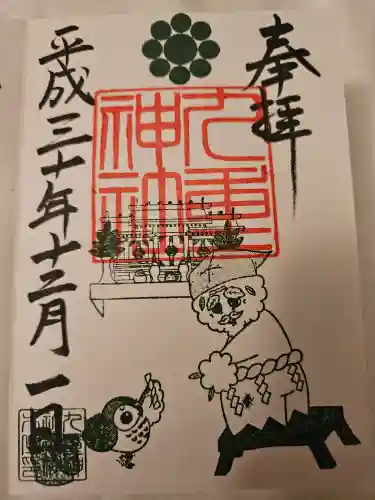 奉拝
九重
神社
平成三十年十二月一日